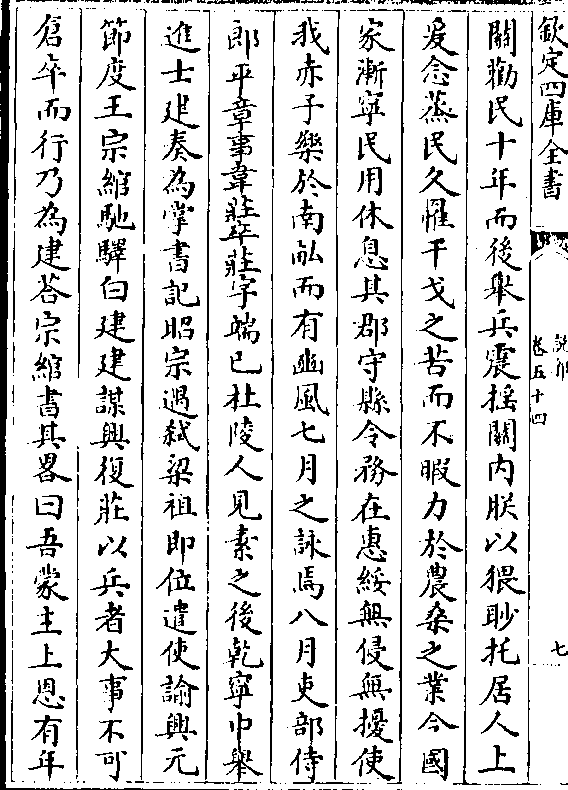 欽定四庫全書
說郛
卷五十四
七
關勸民十年而後舉兵震揺關内朕以猥眇托居人上
爰念蒸民久罹干戈之苦而不暇力於農桑之業今國
家漸寧民用休息其郡守縣令務在惠綏無侵無擾使
我赤子樂於南畝而有豳風七月之詠焉八月吏部侍
郎平章事韋莊卒莊字端已杜陵人見素之後乾寧中舉
進士建奏為掌書記昭宗遇弑梁祖即位遣使諭興元
節度王宗綰馳驛白建建謀興復莊以兵者大事不可
倉卒而行乃為建荅宗綰書其畧曰吾蒙主上恩有年